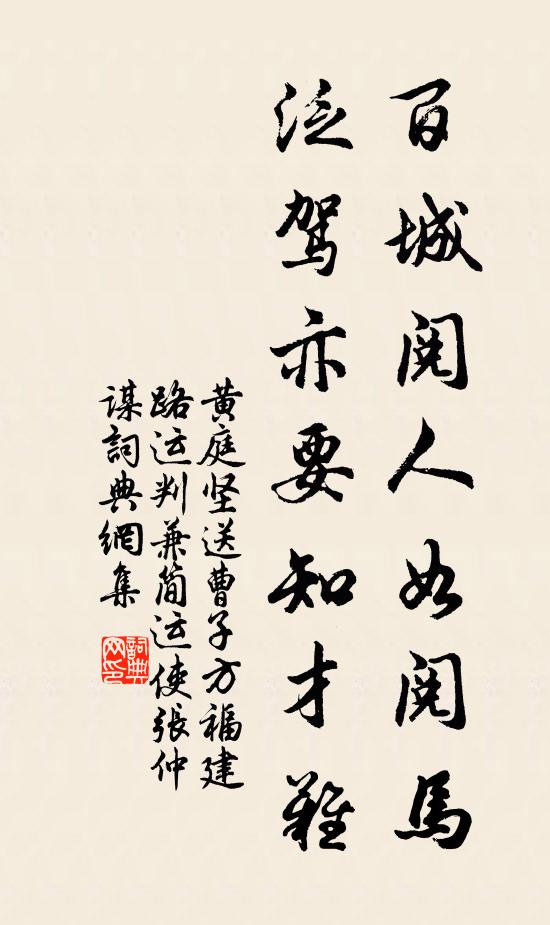 百城閱人如閱馬
泛駕亦要知才難
黄庭坚送曹子方福建
路运判兼简运使張仲
谋詞典網集
詞典
网印